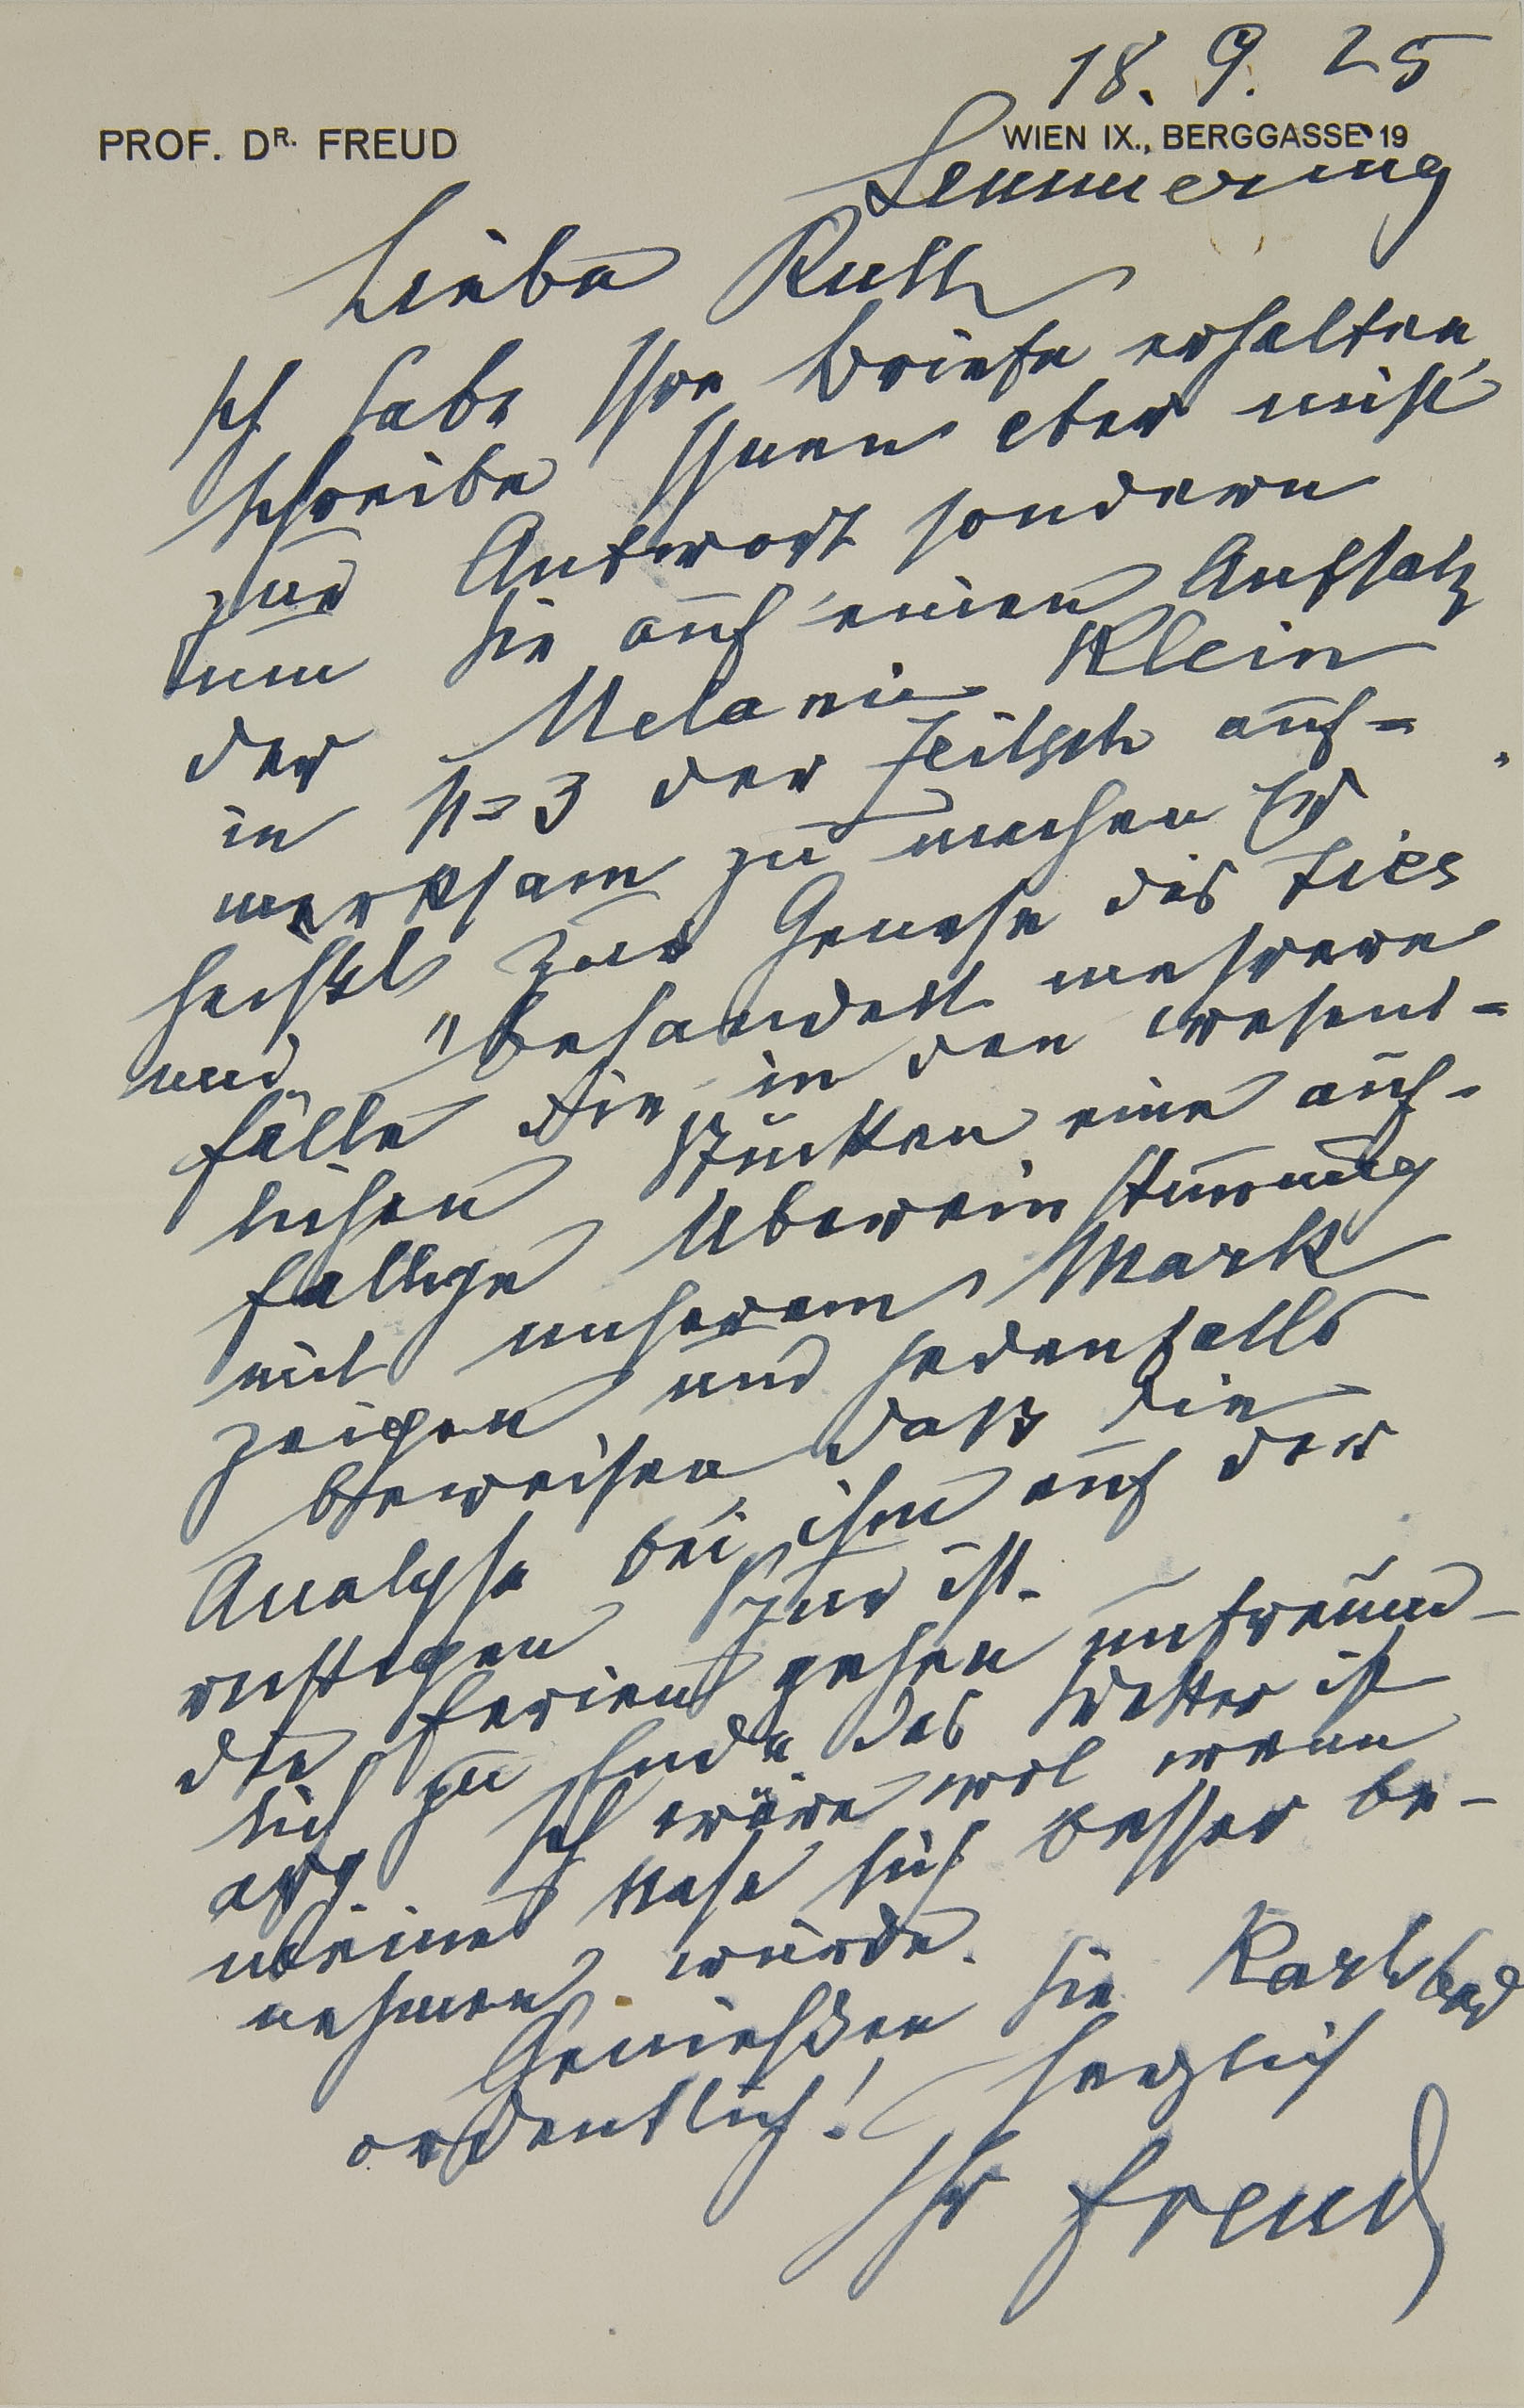 18. 9. 25
PROF. DR. FREUD WIEN IX., BERGGASSE 19
Semmering
Liebe Ruth
Ich habe Ihre Briefe erhalten,
schreibe Ihnen aber nicht
zur Antwort sondern
um Sie auf einen Aufsatz
der Melanie Klein
in H 3 der Zeitsch auf=
merksam zu machen Er
heißt zur Genese des Tics
und behandelt mehrere
Fälle die in den wesent=
lichen Stücken eine auf-
fällige Übereinstimmung
mit unserem Mark
zeigen und jedenfalls
beweisen, daß die
Analyse bei ihm auf der
richtigen Spur ist.
Die Ferien gehen unfreund-
lich zu Ende. Das Wetter ist
arg. Ich wäre wol wenn
meine Nase sich besser be-
nehmen würde.
Genießen Sie Karlsbad
ordentlich! herzlich
Ihr Freud